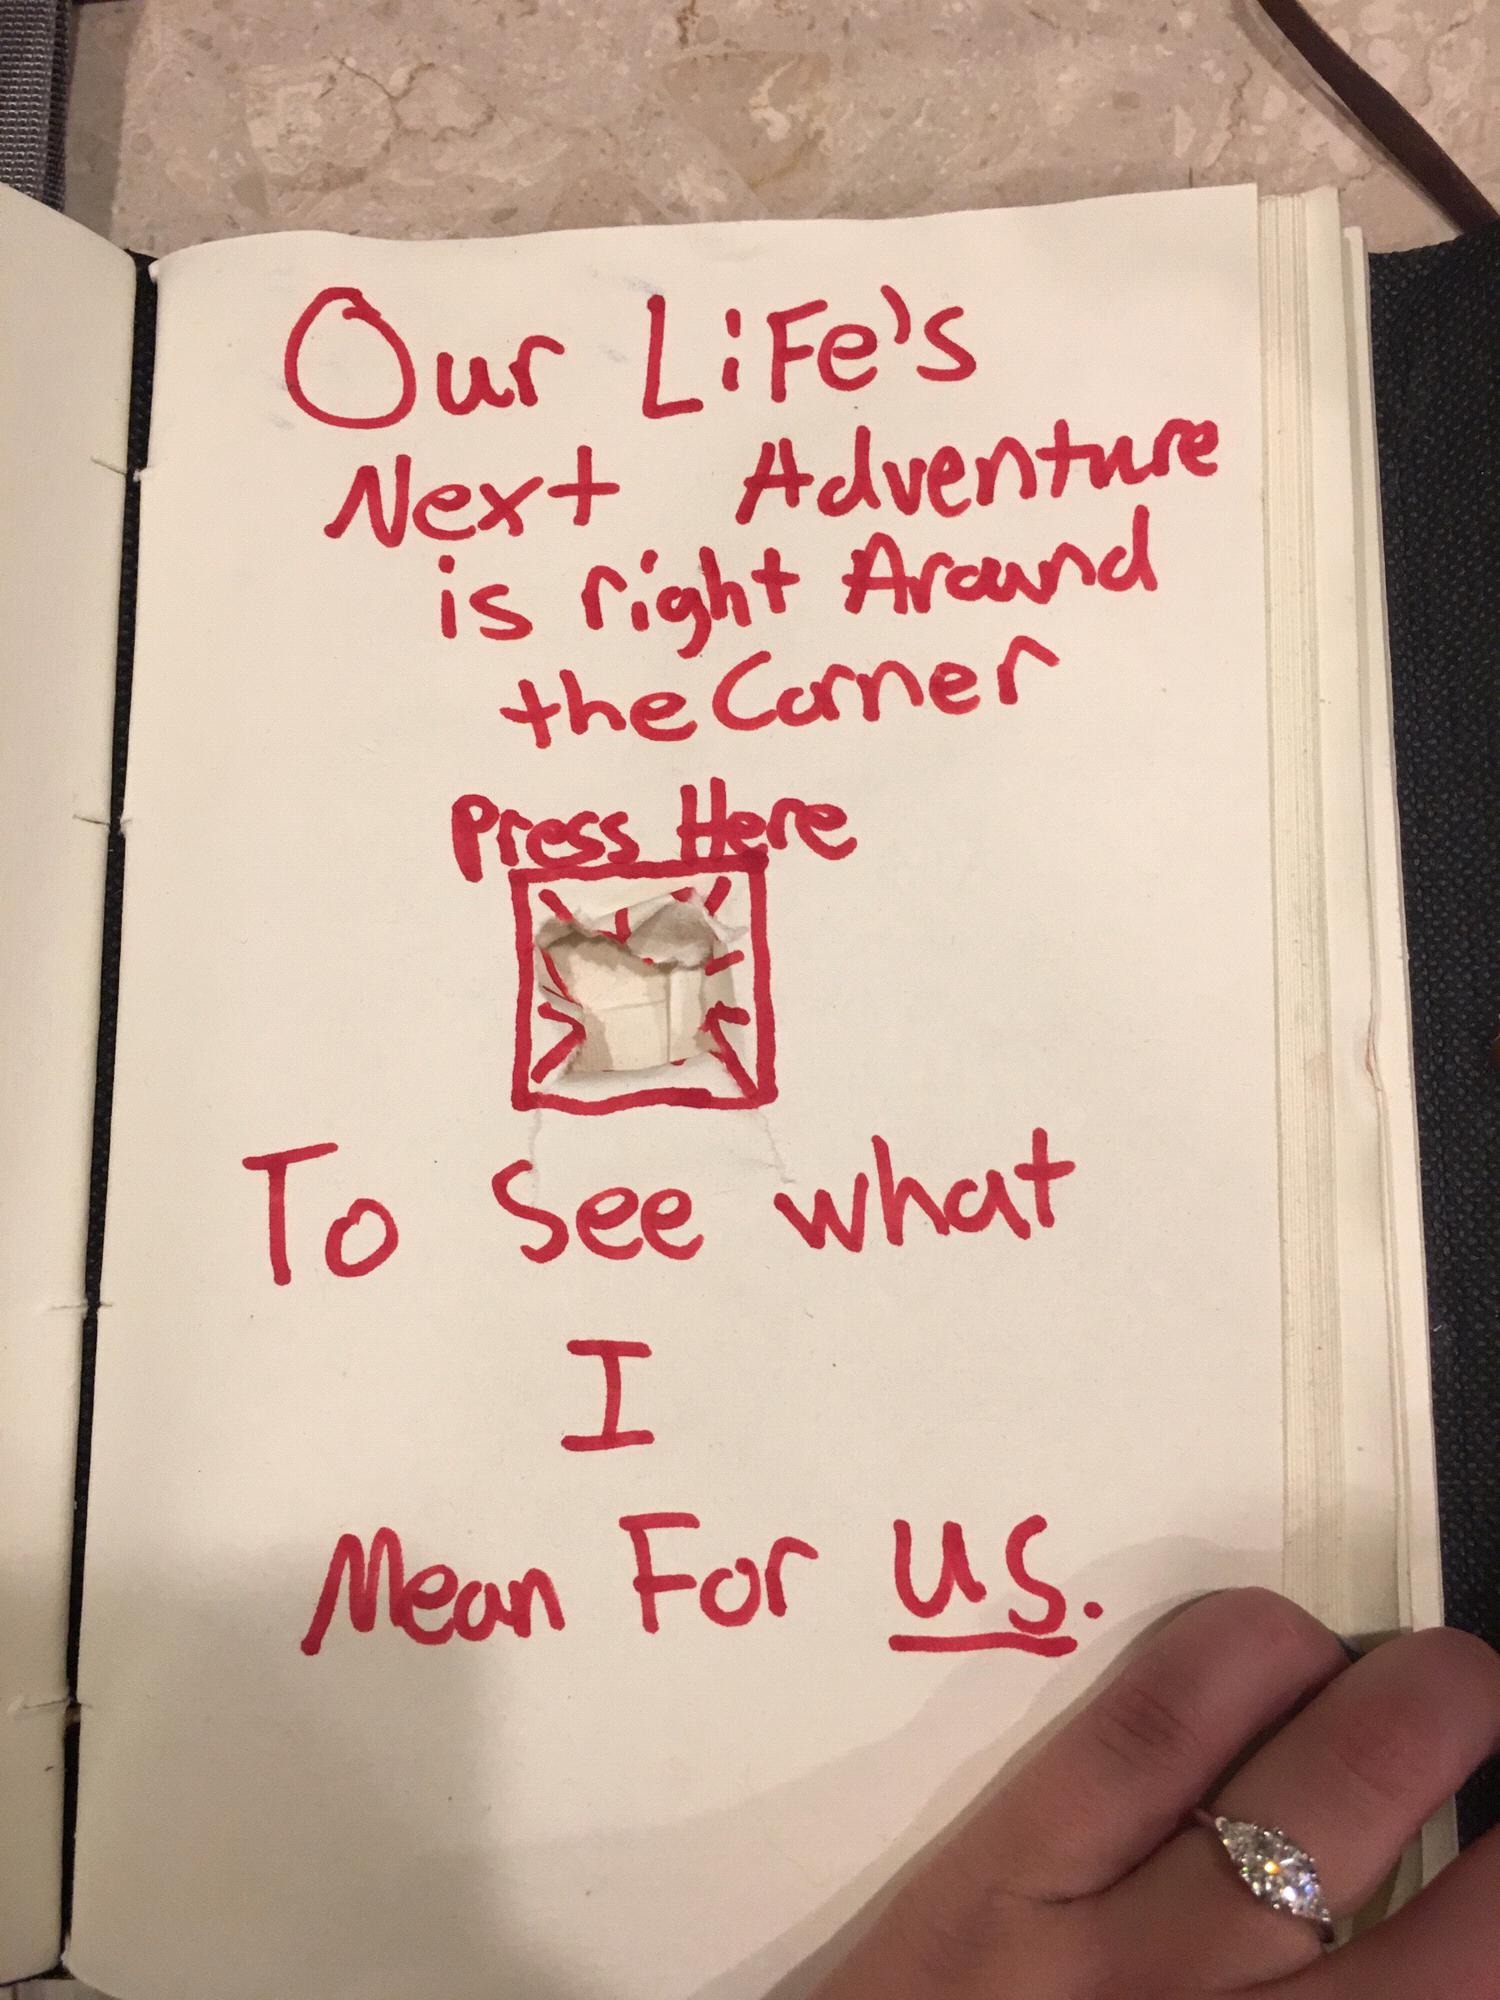 Our LiFe's
Next Adventure
is right Around
the Corner
Press Here
To See what
I
Mean For US.